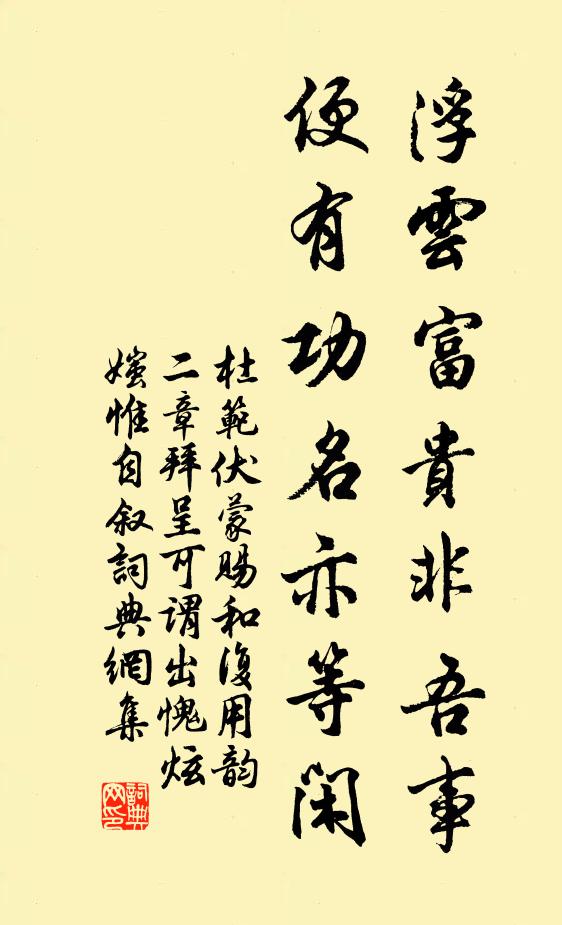 浮雲富貴非吾事
便有功名亦等閑
杜範伏蒙賜和復用韵
二章拜呈可謂出愧炫
媸惟自叙詞典網集
詞典网印